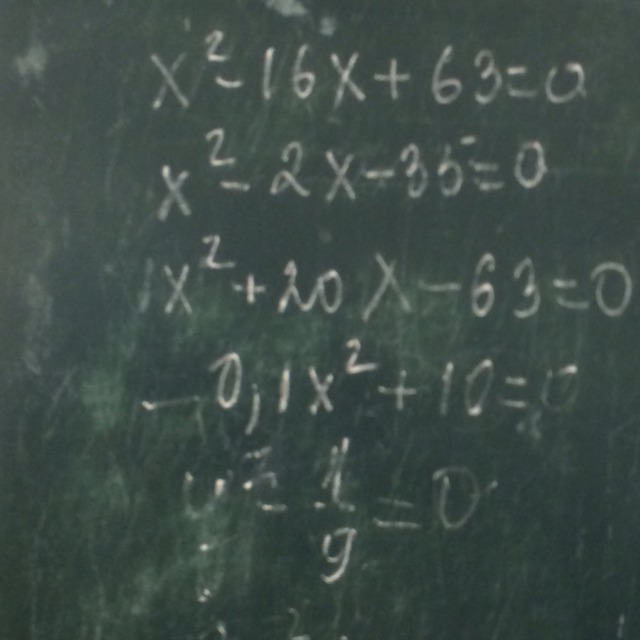 x² - 16x + 63 = 0
x² - 2x - 35 = 0
x² + 20x - 63 = 0
- 0,1x² + 10 = 0
² - 1/9 = 0